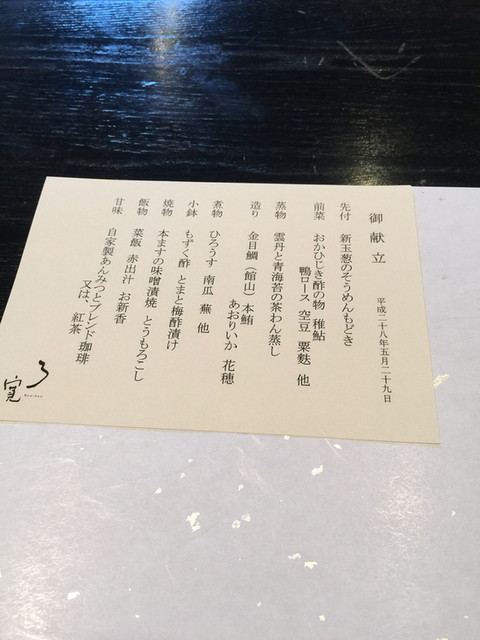 御献立　平成二十八年五月二十九日
先付　新玉葱のそうめんもどき
前菜　おかひじき酢の物　稚鮎
鴨ロース　空豆　粟麩　他
蒸物　雲丹と青海苔の茶わん蒸し
造り　金目鯛（館山）本鮪
あおりいか　花穂
煮物　ひろうす　南瓜　蕪　他
小鉢　もずく酢　とまと梅酢漬け
焼物　本ますの味噌漬焼　とうもろこし
飯物　菜飯　赤出汁　お新香
甘味　自家製あんみつとブレンド珈琲
又は、紅茶